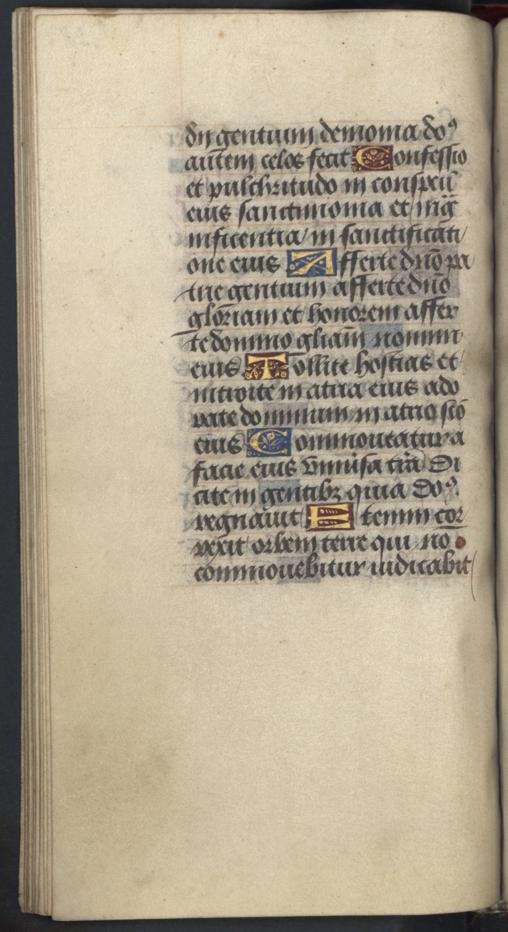 dij gentium demonia do⁹
autem celos fecit Confessio
et pulchritudo in conspcū
eius sanctimonia et mag̃
nificentia in sanctificati
one eius Afferte dño pa
trie gentium afferte dño
gloriam et honorem affer
te domino gliam nomini
eius Tollite hostias et
introite in atria eius ado
rate dominum in atrio sco
eius Commoueatur a
facie eius vniũsa trã Di
cite in gentibꝫ quia do⁹.
regnauit Etenim cor
rexit orbem terre qui no
commouebitur iudicabit